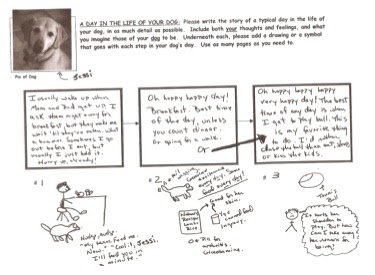 A DAY IN THE LIFE OF YOUR DOG: Please write the story of a typical day in the life of
your dog, in as much detail as possible. Include both your thoughts and feelings, and what
you imagine those of your dog to be. Underneath each, please add a drawing or a symbol
that goes with each step in your dog's day. Use as many pages as you need to.
Pic of Dog
Jessi
I usually wake up when
Mom and Dad get up. I
ask them right away for
breakfast, but they make me
wait 'til they're
Sometimes I go
out before I eat, but
usually I just hold it.
Hurry up, already!
Oh happy happy day!
Breakfast. Best time
of the day, unless
you count dinner.
Or going for a walk.
Or
Oh happy happy happy
very happy day! The best
time of my day is when
I get to play ball. This
is my favorite thing
to do. I'd rather
chase the ball than eat, sleep
or kiss the kids.
#1
#2
#3
Nudge, nudge.
"Hey Mom. Feed me.
Now." "Cool it, Jessi.
I'll feed you in
a minute."
Good for her
skin.
Lamb
Rice
Or Pill for
arthritis.
Glucosamine.
Tennis
Ball
It hurts her
shoulder to
play. But how
can I take away
her reason for
being?